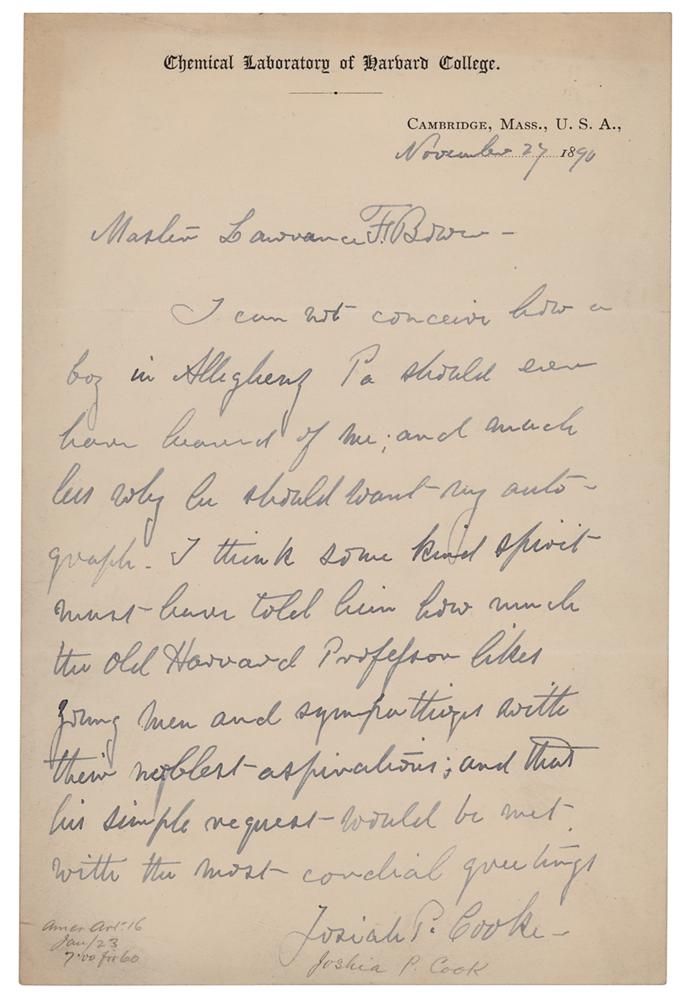 Chemical Laboratory of Harvard College.
Cambridge, Mass., U. S. A.,
November 27 1890
Master Lawrance F. Bower -
I can not conceive how a
boy in Allegheny Pa should ever
have heard of me; and much
less why he should want my auto-
graph. I think some kind spirit
must have told him how much
the old Harvard Professor likes
young men and sympathizes with
their noblest aspirations; and that
his simple request would be met
with the most cordial greetings
Josiah P. Cooke -
Joshia P. Cook
Amer Art. 16
Jan/23
7.00 for 60